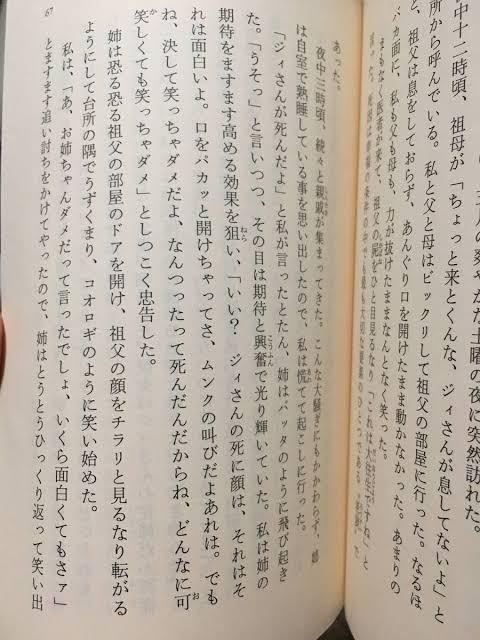 の爽やかな土曜の夜に突然訪れた。
中十二時頃、祖母が「ちょっと来とくんな、ジィさんが息してないよ」と
所から呼んでいる。私と父と母はビックリして祖父の部屋に行った。なるほ
、祖父は息をしておらず、あんぐり口を開けたまま動かなかった。あまりの
バカ面に、私も父も母も、力が抜けたままなんとなく笑った。
まもなく医者が来て、祖父の屍をひと目見るなり「これは大往生ですね」と
言った。死因は
あった。
夜中三時頃、続々と親戚が集まってきた。こんな大騒ぎにもかかわらず、姉
は自室で熟睡している事を思い出したので、私は慌てて起こしに行った。
「ジィさんが死んだよ」と私が言ったとたん、姉はバッタのように飛び起き
た。「うそっ」と言いつつ、その目は期待と興奮で光り輝いていた。私は姉の
期待をますます高める効果を狙い、「いい？　ジィさんの死に顔は、それはそ
れは面白いよ。口をパカッと開けちゃってさ、ムンクの叫びだよあれは。でも
ね、決して笑っちゃダメだよ、なんつったって死んだんだからね、どんなに可
笑しくても笑っちゃダメ」としつこく忠告した。
姉は恐る恐る祖父の部屋のドアを開け、祖父の顔をチラリと見るなり転がる
ようにして台所の隅でうずくまり、コオロギのように笑い始めた。
私は、「あ、お姉ちゃんダメだって言ったでしょ、いくら面白くてもさァ」
とますます追い討ちをかけてやったので、姉はとうとうひっくり返って笑い出
67